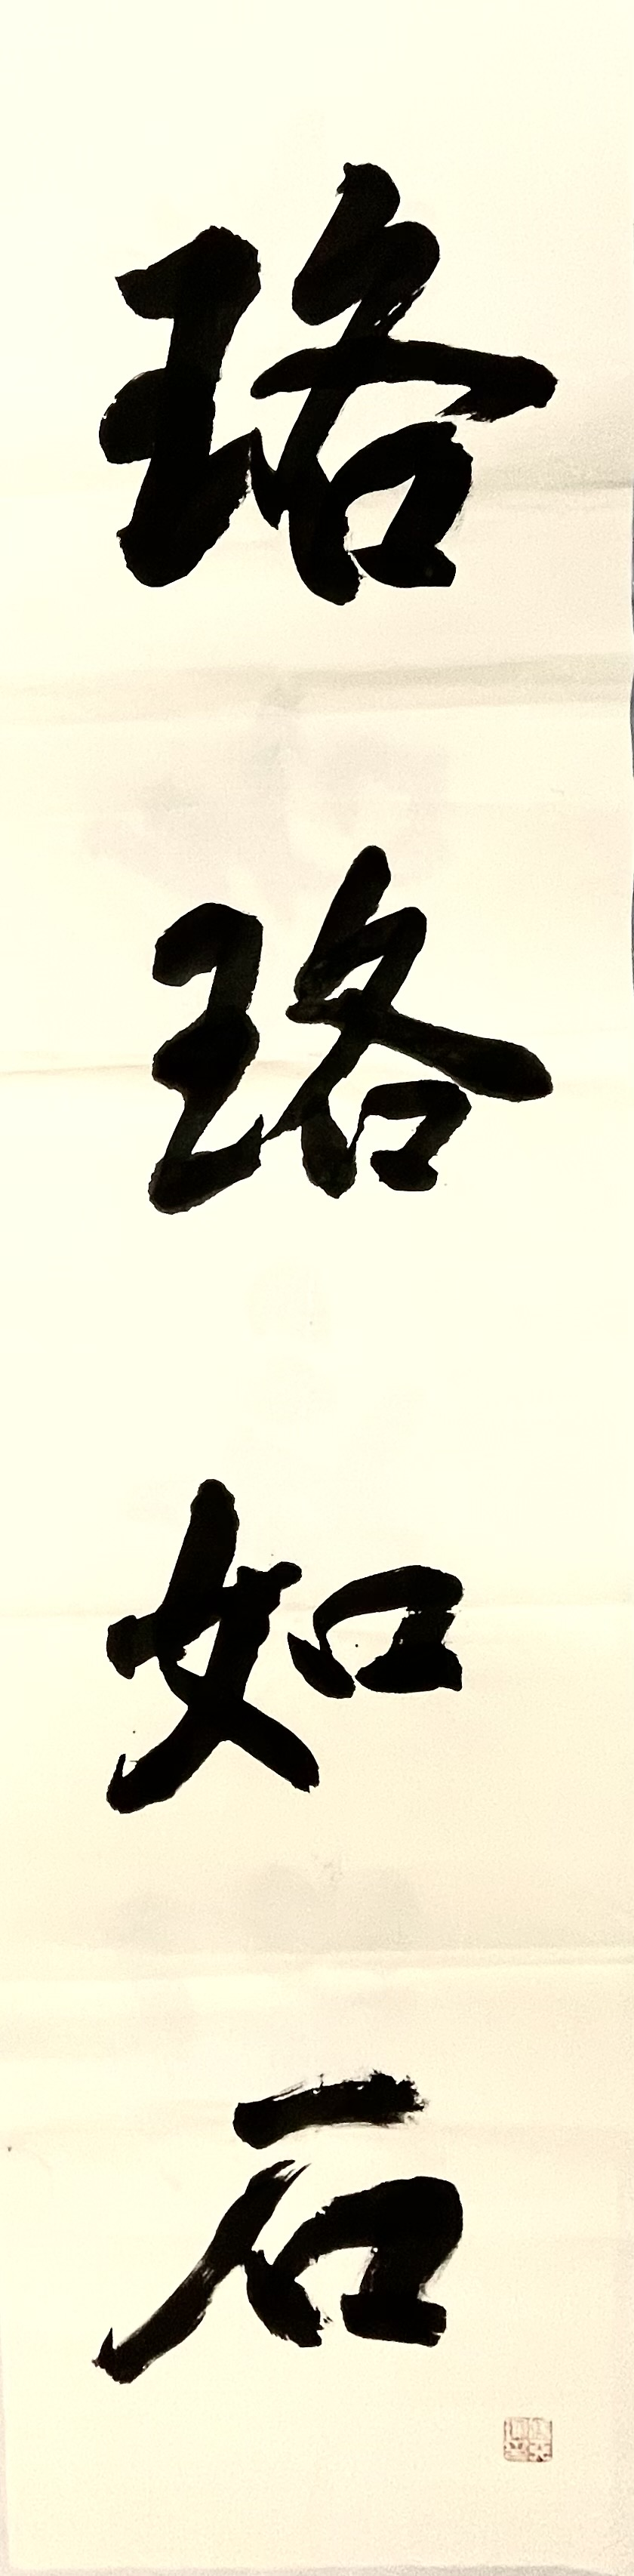 珞珞如石